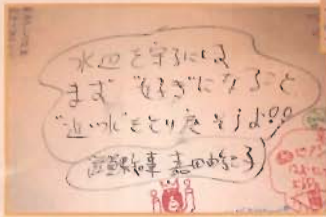 水辺を守るには
まず “好き”になること
“近い水”をとり戻そうよ!!
滋賀県知事 嘉田由紀子